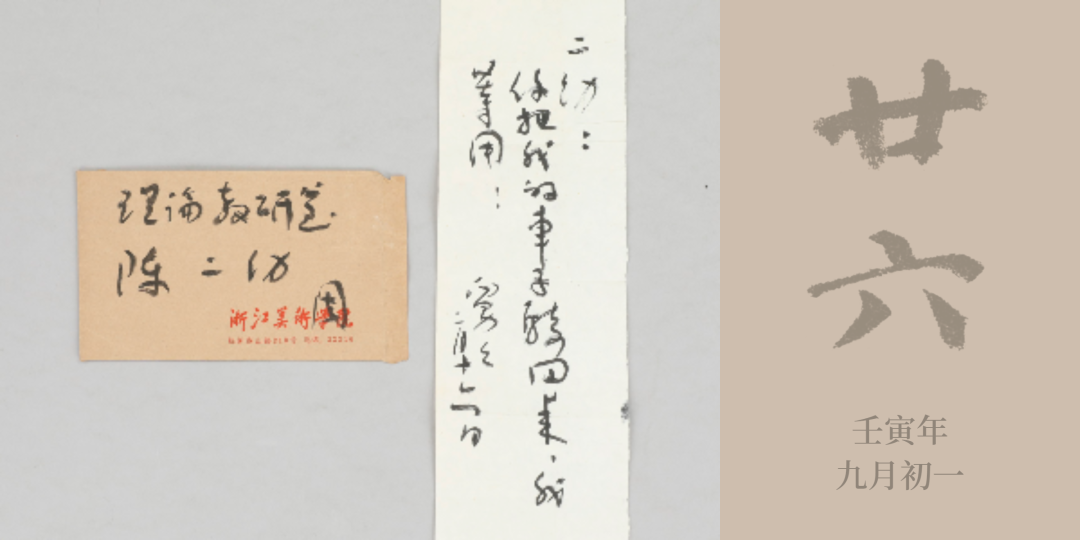 理論教研室
陈二幼
周
浙江美術学院
二幼：
你把我的車子騎回来，我
等用：
二月十六日
廿六
壬寅年
九月初一